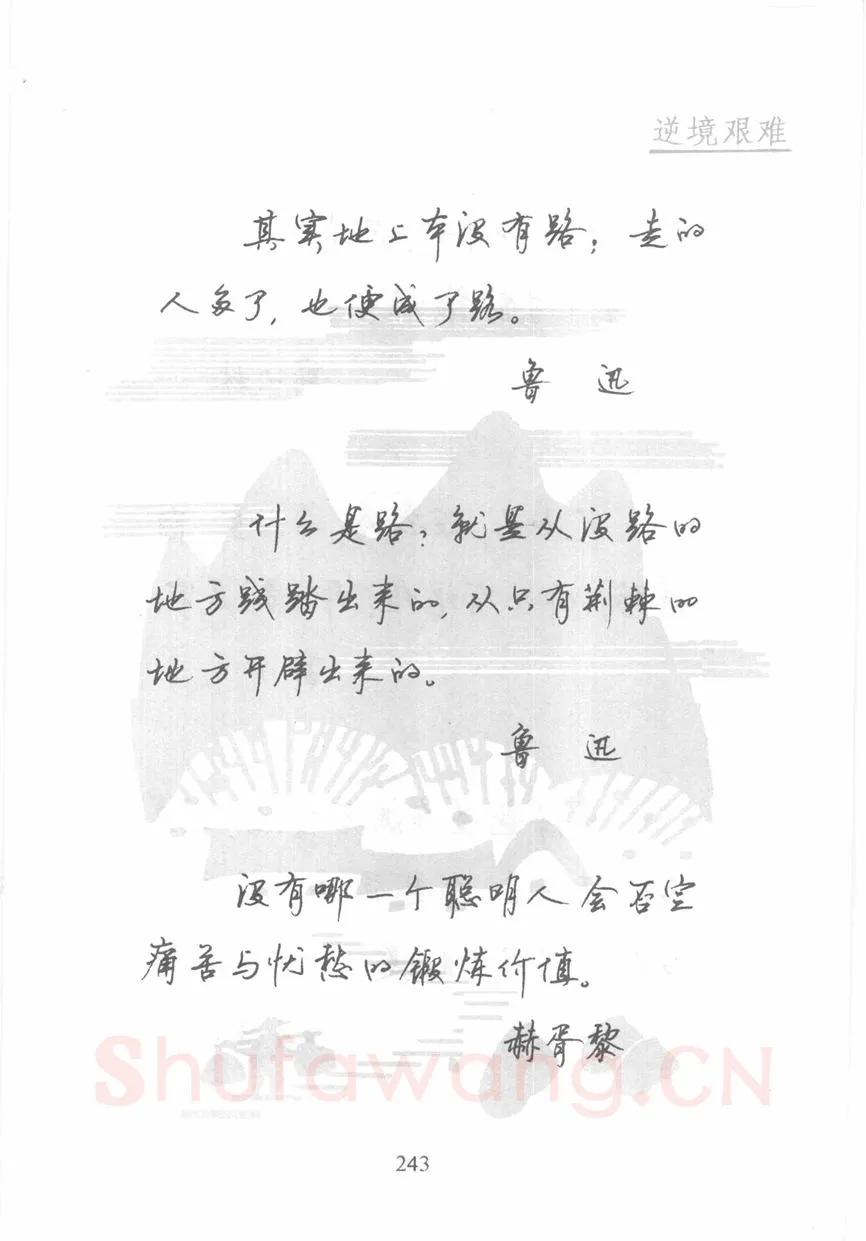 逆境艰难
其实地上本没有路；走的
人多了，也便成了路。
鲁 迅
什么是路？就是从没路的
地方践踏出来的，从只有荆棘的
地方开辟出来的。
鲁 迅
没有哪一个聪明人会否定
痛苦与忧愁的锻炼价值。
赫胥黎
Shufawang.CN
243